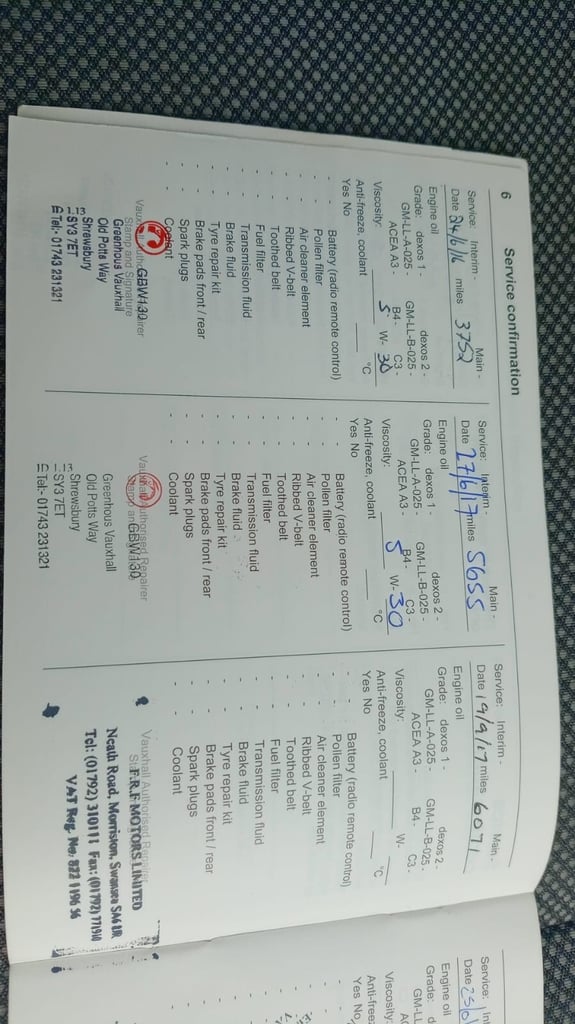 6 Service confirmation
Service: Interim - Main -
Date 24/6/16 miles 3752
Engine oil
Grade: dexos 1 - dexos 2 -
GM-LL-A-025 - GM-LL-B-025 -
ACEA A3 - B4 - C3 -
Viscosity: 5 W- 30
Anti-freeze, coolant °C
Yes No
- - Battery (radio remote control)
- - Pollen filter
- - Air cleaner element
- - Ribbed V-belt
- - Toothed belt
- - Fuel filter
- - Transmission fluid
- - Brake fluid
- - Tyre repair kit
- - Brake pads front / rear
- - Spark plugs
- - Coolant
Vauxhall Authorised Repairer
Stamp and Signature
GBW130
Greenhous Vauxhall
Old Potts Way
Shrewsbury
SY3 7ET
Tel:- 01743 231321
Service: Interim - Main -
Date 27/6/17 miles 5655
Engine oil
Grade: dexos 1 - dexos 2 -
GM-LL-A-025 - GM-LL-B-025 -
ACEA A3 - B4 - C3 -
Viscosity: 5 W- 30
Anti-freeze, coolant °C
Yes No
- - Battery (radio remote control)
- - Pollen filter
- - Air cleaner element
- - Ribbed V-belt
- - Toothed belt
- - Fuel filter
- - Transmission fluid
- - Brake fluid
- - Tyre repair kit
- - Brake pads front / rear
- - Spark plugs
- - Coolant
Vauxhall Authorised Repairer
GBW130
Greenhous Vauxhall
Old Potts Way
Shrewsbury
SY3 7ET
Tel:- 01743 231321
Service: Interim - Main -
Date 19/9/17 miles 6071
Engine oil
Grade: dexos 1 - dexos 2 -
GM-LL-A-025 - GM-LL-B-025 -
ACEA A3 - B4 - C3 -
Viscosity: W-
Anti-freeze, coolant °C
Yes No
- - Battery (radio remote control)
- - Pollen filter
- - Air cleaner element
- - Ribbed V-belt
- - Toothed belt
- - Fuel filter
- - Transmission fluid
- - Brake fluid
- - Tyre repair kit
- - Brake pads front / rear
- - Spark plugs
- - Coolant
Vauxhall Authorised Repairer
F.R.J. MOTORS LIMITED
Neath Road, Morriston, Swansea SA6 8R
Tel: (01792) 310111 Fax: (01792) 771940
VAT Reg. No. 822 1196 56
Service: Int
Date
Engine oil
Grade: d
GM-L
AC
Viscosity:
Anti-freez
Yes No